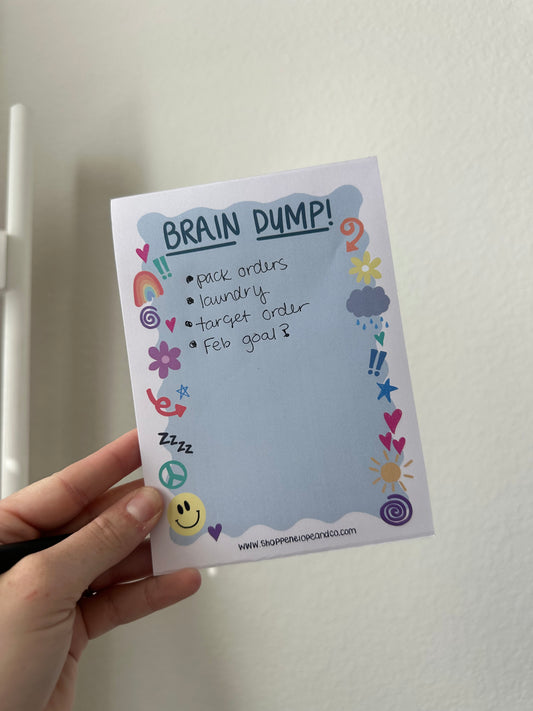 BRAIN DUMP!
• pack orders
• laundry
• target order
• Feb goal?
zzzz
www.shoppenelopeandco.com